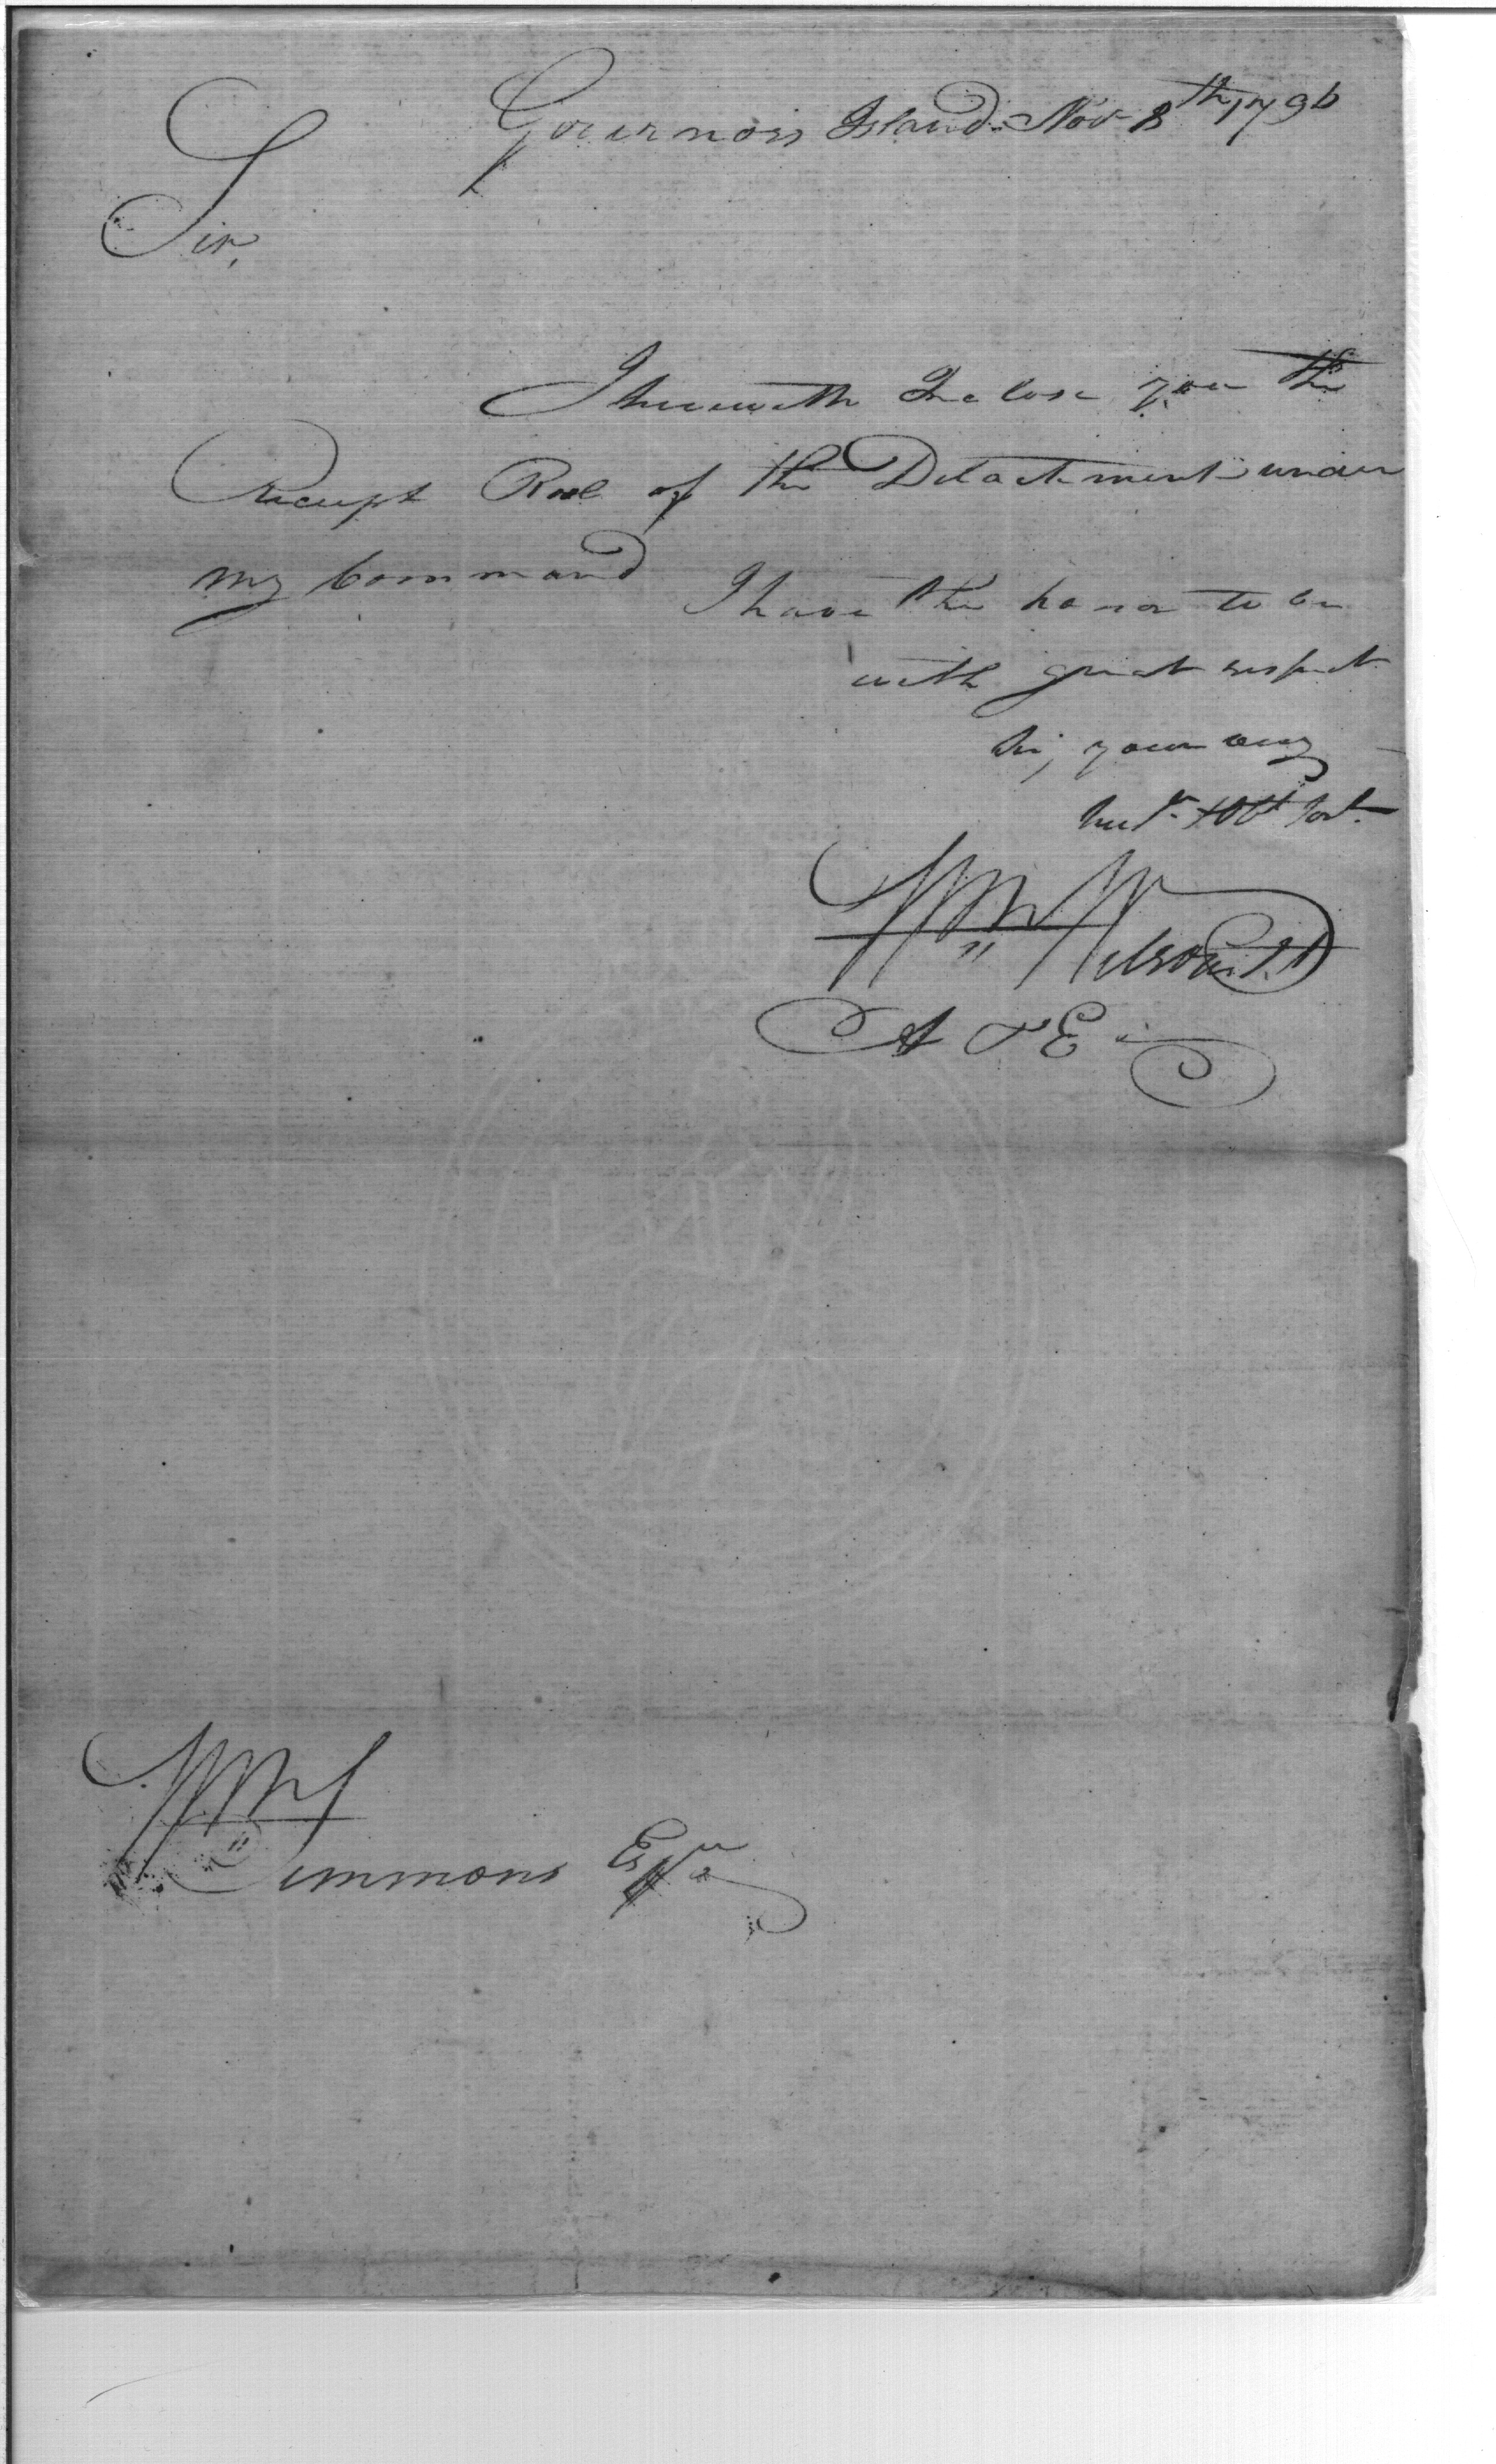 Governors Island Nov 8th 1796
Sir,
I herewith Inclose you the
Receipt Role of the Detachment under
my Command
I have the honor to be
with great respect
Sir, your very
Hue Sr. + Obt Sert.
Wm Wilson Lt
A & E
Wm
Simmons Esqr